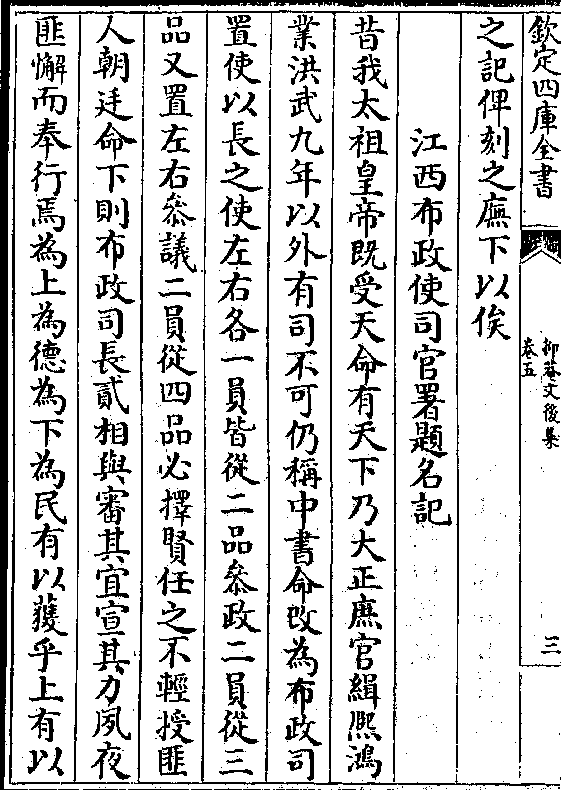 欽定四庫全書
抑菴文後集
卷五
三
之記俾刻之廡下以俟
江西布政使司官署題名記
昔我太祖皇帝既受天命有天下乃大正庶官緝熙鴻
業洪武九年以外有司不可仍稱中書命改為布政司
置使以長之使左右各一員皆從二品叅政二員從三
品又置左右叅議二員從四品必擇賢任之不輕授匪
人朝廷命下則布政司長貳相與審其宜宣其力夙夜
匪懈而奉行焉為上為德為下為民有以獲乎上有以